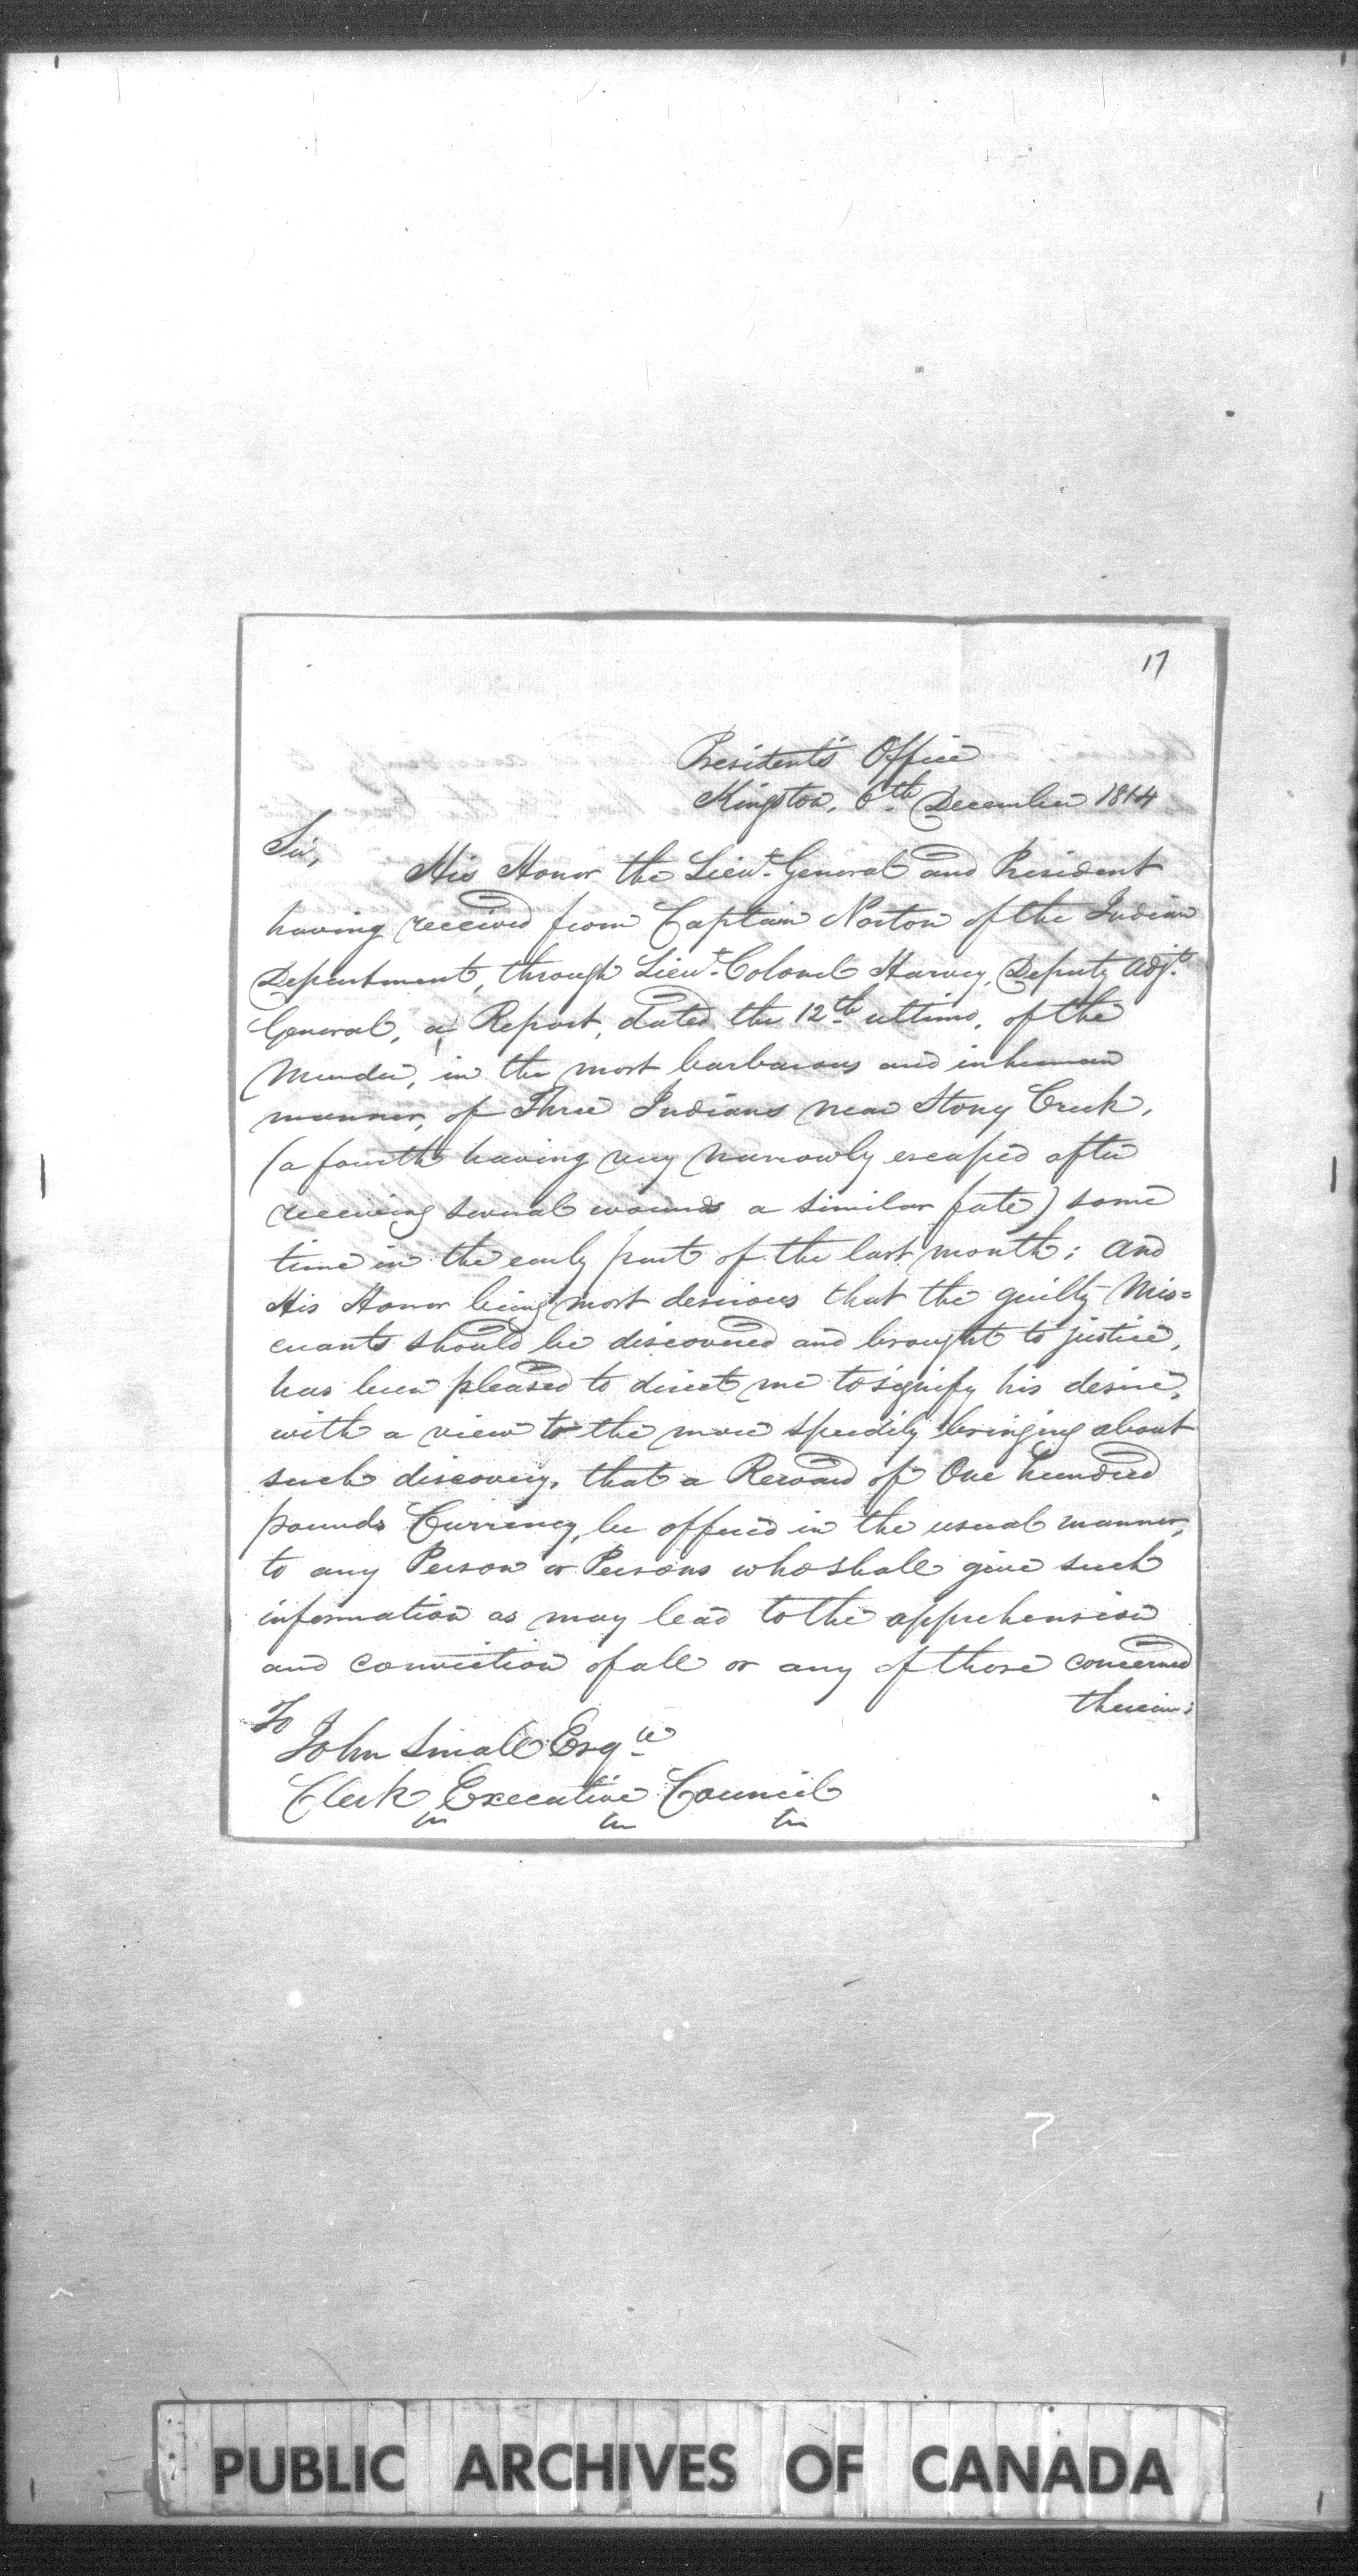 17
Presidents Office
Kingston, 6th December 1814
Sir,
His Honor the Lieut. General and President
having received from Captain Norton of the Indian
Department, through Lieut. Colonel Harvey, Deputy Adjt.
General, a Report, dated the 12th ultimo, of the
Murder, in the most barbarous and inhuman
manner, of Three Indians near Stony Creek,
(a fourth having very narrowly escaped after
receiving several wounds a similar fate) some
time in the early part of the last month; and
His Honor being most desirous that the guilty Mis=
creants should be discovered and brought to justice,
has been pleased to direct me to signify his desire,
with a view to the more speedily bringing about
such discovery, that a Reward of One hundred
pounds Currency, be offered in the usual manner,
to any Person or Persons who shall give such
information as may lead to the apprehension
and conviction of all or any of those concerned
therein;
To
John Small Esqre
Clerk Executive Council
7
PUBLIC ARCHIVES OF CANADA